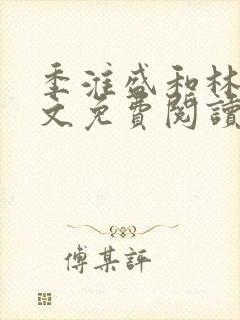 季淮盛和林
文免費閱讀
傅某評